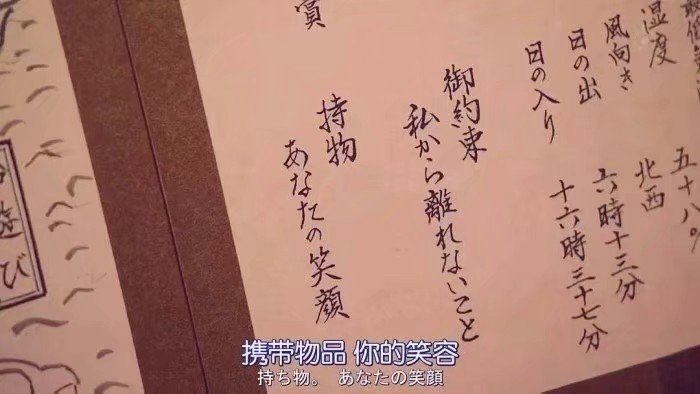 湿度 五十八。
風向き 北西
日の出 六時十三分
日の入り 十六時三十七分
御約束
私から離れないこと
持物
あなたの笑顔
遊び
携带物品 你的笑容
持ち物。 あなたの笑顔